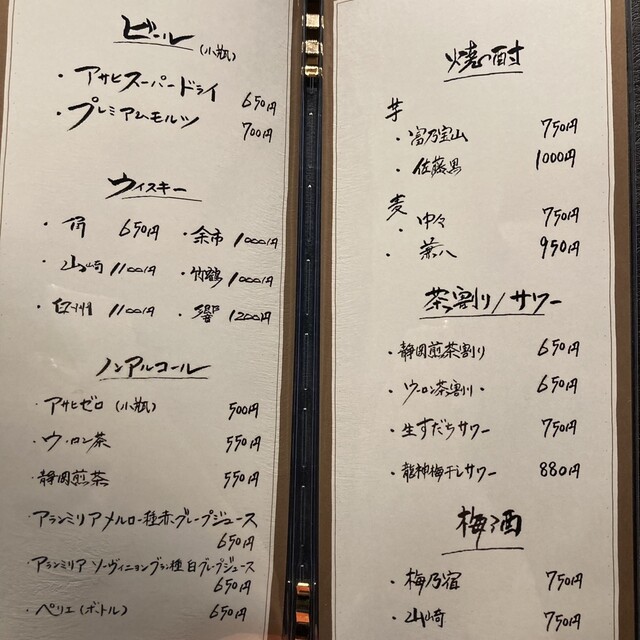 ビール(小瓶)
・アサヒスーパードライ 650円
・プレミアムモルツ 700円
ウィスキー
・角 650円 ・余市 1000円
・山崎 1100円 ・竹鶴 1000円
・白州 1100円 ・響 1200円
ノンアルコール
・アサヒゼロ(小瓶) 500円
・ウーロン茶 550円
・静岡煎茶 550円
・アランミリアメルロー種赤グレープジュース
650円
・アランミリアソーヴィニョンブラン種白グレープジュース
650円
・ペリエ(ボトル) 650円
焼酎
芋
・富乃宝山 750円
・佐藤黒 1000円
麦
・中々 750円
・兼八 950円
茶割り/サワー
・静岡煎茶割り 650円
・ウーロン茶割り 650円
・生すだちサワー 750円
・龍神梅干しサワー 880円
梅酒
・梅乃宿 750円
・山崎 750円